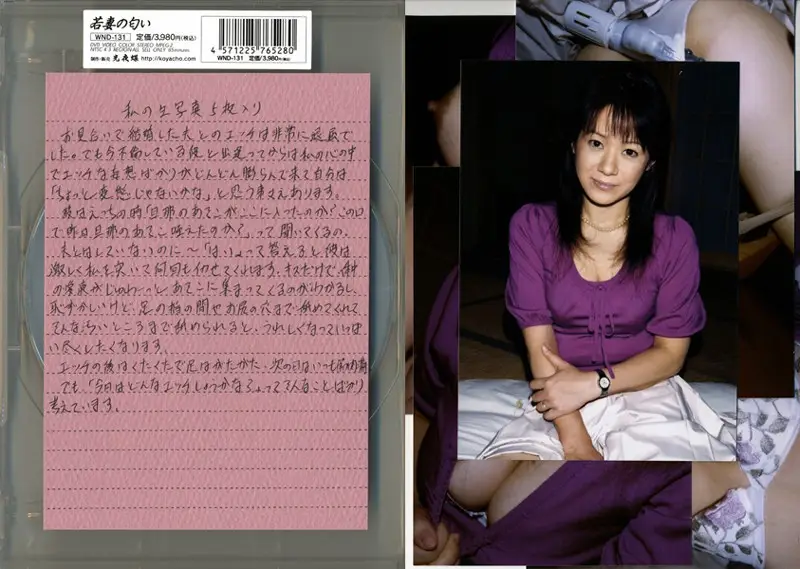 若妻の匂い
WND-131 定価/3,980円(税込)
DVD VIDEO COLOR STEREO MPEG2
NTSC 4:3 REGION-ALL SELL ONLY 85minutes
制作・販売 光夜蝶 http://koyacho.com
4 571225 765280
WND-131 定価/3,980円(税込)
私の生写真5枚入り
お見合いで結婚した夫とのエッチは非常に淡泊で
した。でも今不倫している彼と出逢ってからは私の心の中
でエッチな妄想ばかりがどんどん膨らんで来て自分は
「ちょっと変態じゃないかな」と思う事さえあります。
彼はえっちの時「旦那のあそこがここに入ったのか?この口
で昨日旦那のあそこ咥えたのか?」って聞いてくるの。
夫とはしていないのに〜「はい」って答えると彼は
激しく私を突いて何回もイかせてくれます。キスだけで
の感覚がじゅわーっとあそこに集まってくるのがわかるし、
恥ずかしいけど、足の指の間やお尻の穴まで舐めてくれて
そんなところまで舐められると、うれしくなっていっぱ
い尽くしたくなります。
エッチの後はくたくたで足はがたがた、次の日はいつも
でも、「今日はどんなエッチしようかなぁ」ってそんなことばかり
考えています。